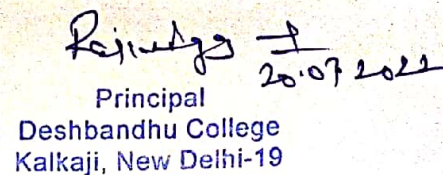 20.07.2022
Principal
Deshbandhu College
Kalkaji, New Delhi-19